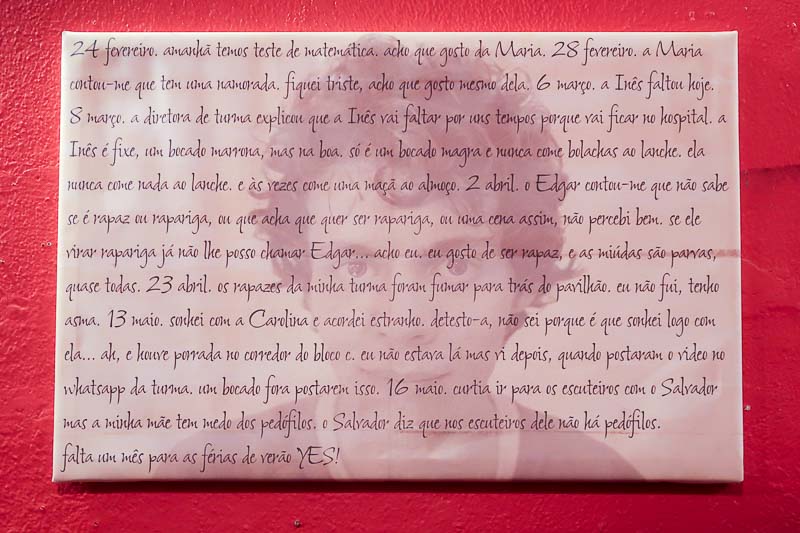 24 fevereiro. amanhã temos teste de matemática. acho que gosto da Maria. 28 fevereiro. a Maria
contou-me que tem uma namorada. fiquei triste, acho que gosto mesmo dela. 6 março. a Inês faltou hoje.
8 março. a diretora de turma explicou que a Inês vai faltar por uns tempos porque vai ficar no hospital. a
Inês é fixe, um bocado marrona, mas na boa. só é um bocado magra e nunca come bolachas ao lanche. ela
nunca come nada ao lanche. e às vezes come uma maçã ao almoço. 2 abril. o Edgar contou-me que não sabe
se é rapaz ou rapariga, ou que acha que quer ser rapariga, ou uma cena assim, não percebi bem. se ele
virar rapariga já não lhe posso chamar Edgar... acho eu. eu gosto de ser rapaz, e as miúdas são parvas,
quase todas. 23 abril. os rapazes da minha turma foram fumar para trás do pavilhão. eu não fui, tenho
asma. 13 maio. sonhei com a Carolina e acordei estranho. detesto-a, não sei porque é que sonhei logo com
ela... ah, e houve porrada no corredor do bloco c. eu não estava lá mas vi depois, quando postaram o video no
whatsapp da turma. um bocado fora postarem isso. 16 maio. curtia ir para os escuteiros com o Salvador
mas a minha mãe tem medo dos pedófilos. o Salvador diz que nos escuteiros dele não há pedófilos.
falta um mês para as férias de verão YES!